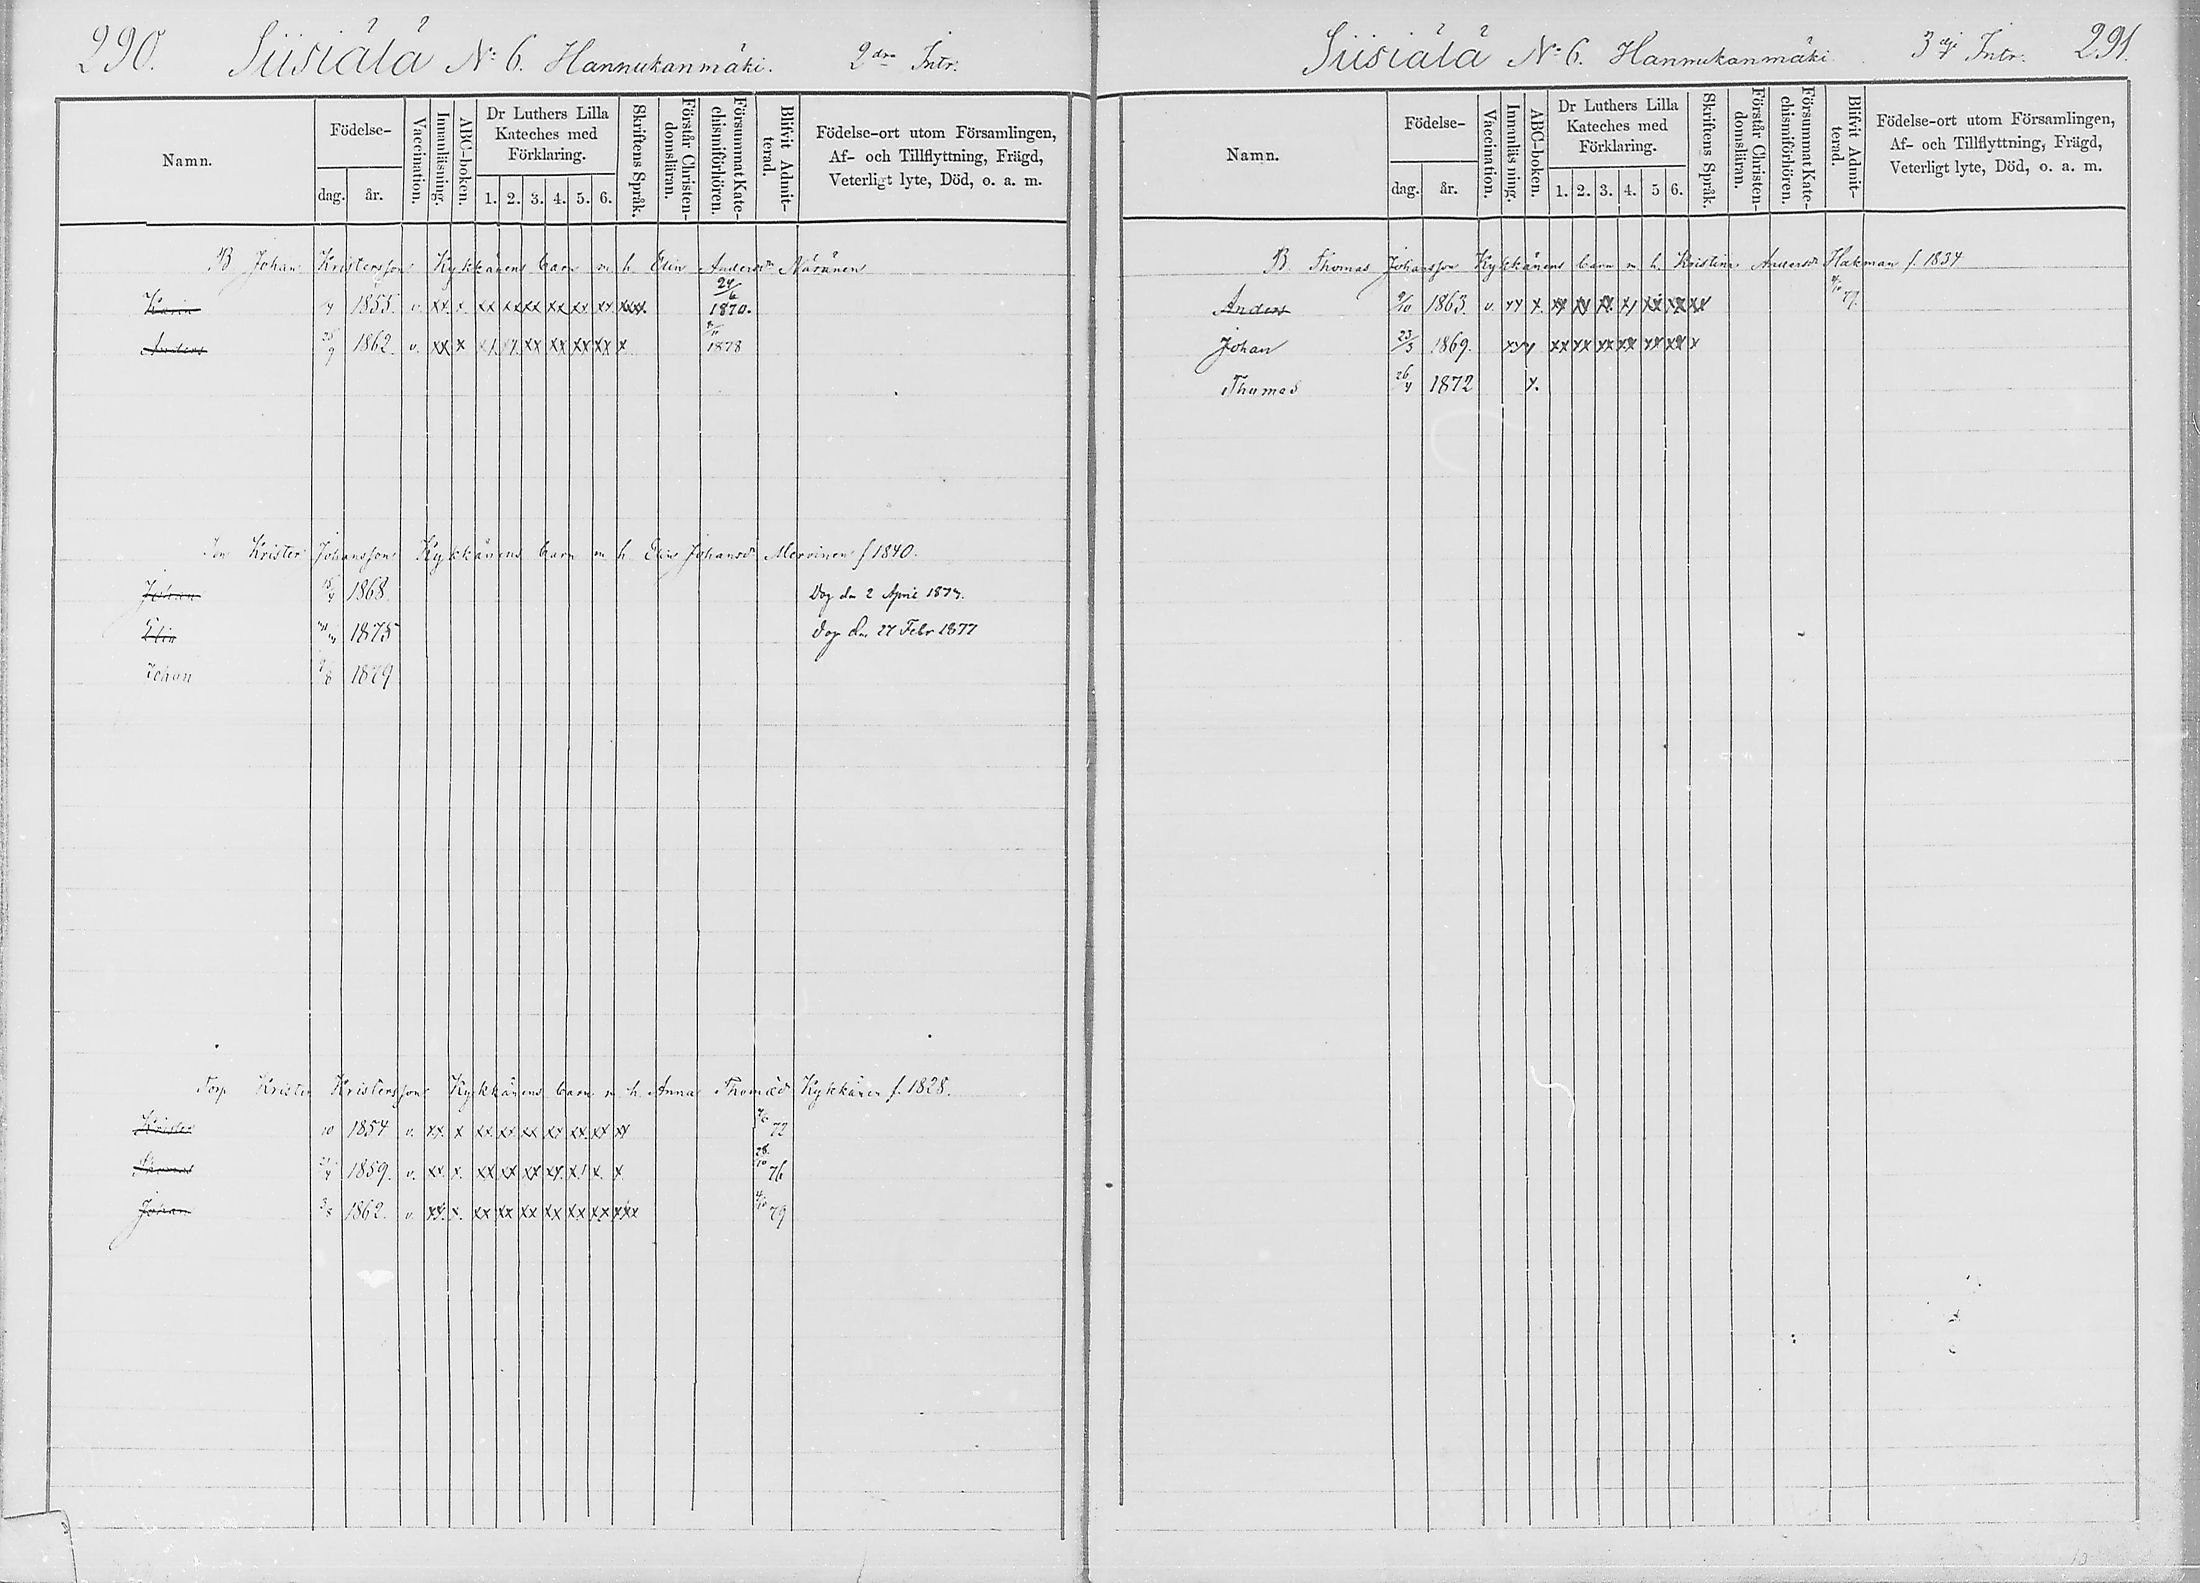 290. Siisiälä No 6. Hannukanmäki. 2dra Intr.
Namn. Födelse- dag. år. Vaccination. Innanläsning. ABC-boken. Dr Luthers Lilla Kateches med Förklaring. 1. 2. 3. 4. 5. 6. Skriftens Språk. Förstår Christendomsläran. Försummat Katechismiförhören. Blifvit Admitterad. Födelse-ort utom Församlingen, Af- och Tillflyttning, Frägd, Veterligt lyte, Död, o. a. m.
B Johan Kristersson Kykkänens barn m h Elin Andersdr Näränen
Karin 1855. v. xx x. xx xx xx xx xx xx xxx. 24/6 1870.
Anders 28/9 1862. v. xx x xx xx xx xx xx xx x 1878
Son Krister Johanssons Kykkänens barn m h Elin Johansdr Mervinen f 1840.
Johan 1868. Dog den 2 April 1874.
Elin 1875 dog den 27 Febr 1877
Johan 1879
Torp Krister Kristerssons Kykkänens barn m h Anna Thomæd Kykkänen f. 1828.
Krister 10 1854 v. xx. x xx xx xx xx xx xx xx 72
Thomas 1859. v. xx. x. xx xx xx xx. x x. x 28/10 76
Johan 1862. v. xx. x. xx xx xx xx xx xx xxx 4/10 79
Siisiälä No 6. Hannukanmäki 3dje Intr. 291.
Namn. Födelse- dag. år. Vaccination. Innanläsning. ABC-boken. Dr Luthers Lilla Kateches med Förklaring. 1. 2. 3. 4. 5 6. Skriftens Språk. Förstår Christendomsläran. Försummat Katechismiförhören. Blifvit Admitterad. Födelse-ort utom Församlingen, Af- och Tillflyttning, Frägd, Veterligt lyte, Död, o. a. m.
B. Thomas Johansson Kykkänens barn m h Kristina Andersdr Hakman f. 1834
Anders 9/10 1863. v. xx x. xx xx xx xx xx xx xx 4/10 79.
Johan 23/3 1869. xx x xx xx xx xx xx xx x
Thomas 26/4 1872 x.